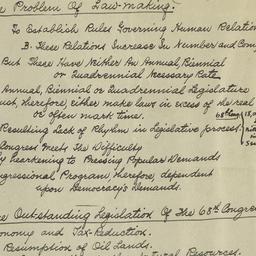 e Problem Of Law-making.
To Establish Rules Governing Human Relation
B. These Relations Increase In Number and Com
But These Have Neither An Annual, Biennial
or Quadrennial Necessary Rate
Annual, Biennial or Quadrennial Legislature
ust, therefore, either make laws in excess of the real
or often mark time.
68th Cong
Resulting Lack of Rhythm in Legislative process.
Congress Meets The Difficulty
By Hearkening to Pressing Popular Demands
ngressional Program, therefore, dependent
upon Democracy's Demands.
e Outstanding Legislation Of The 68th Congre
onomy and Tax-Reduction.
Resumption of Oil Lands.
Natural Resources.